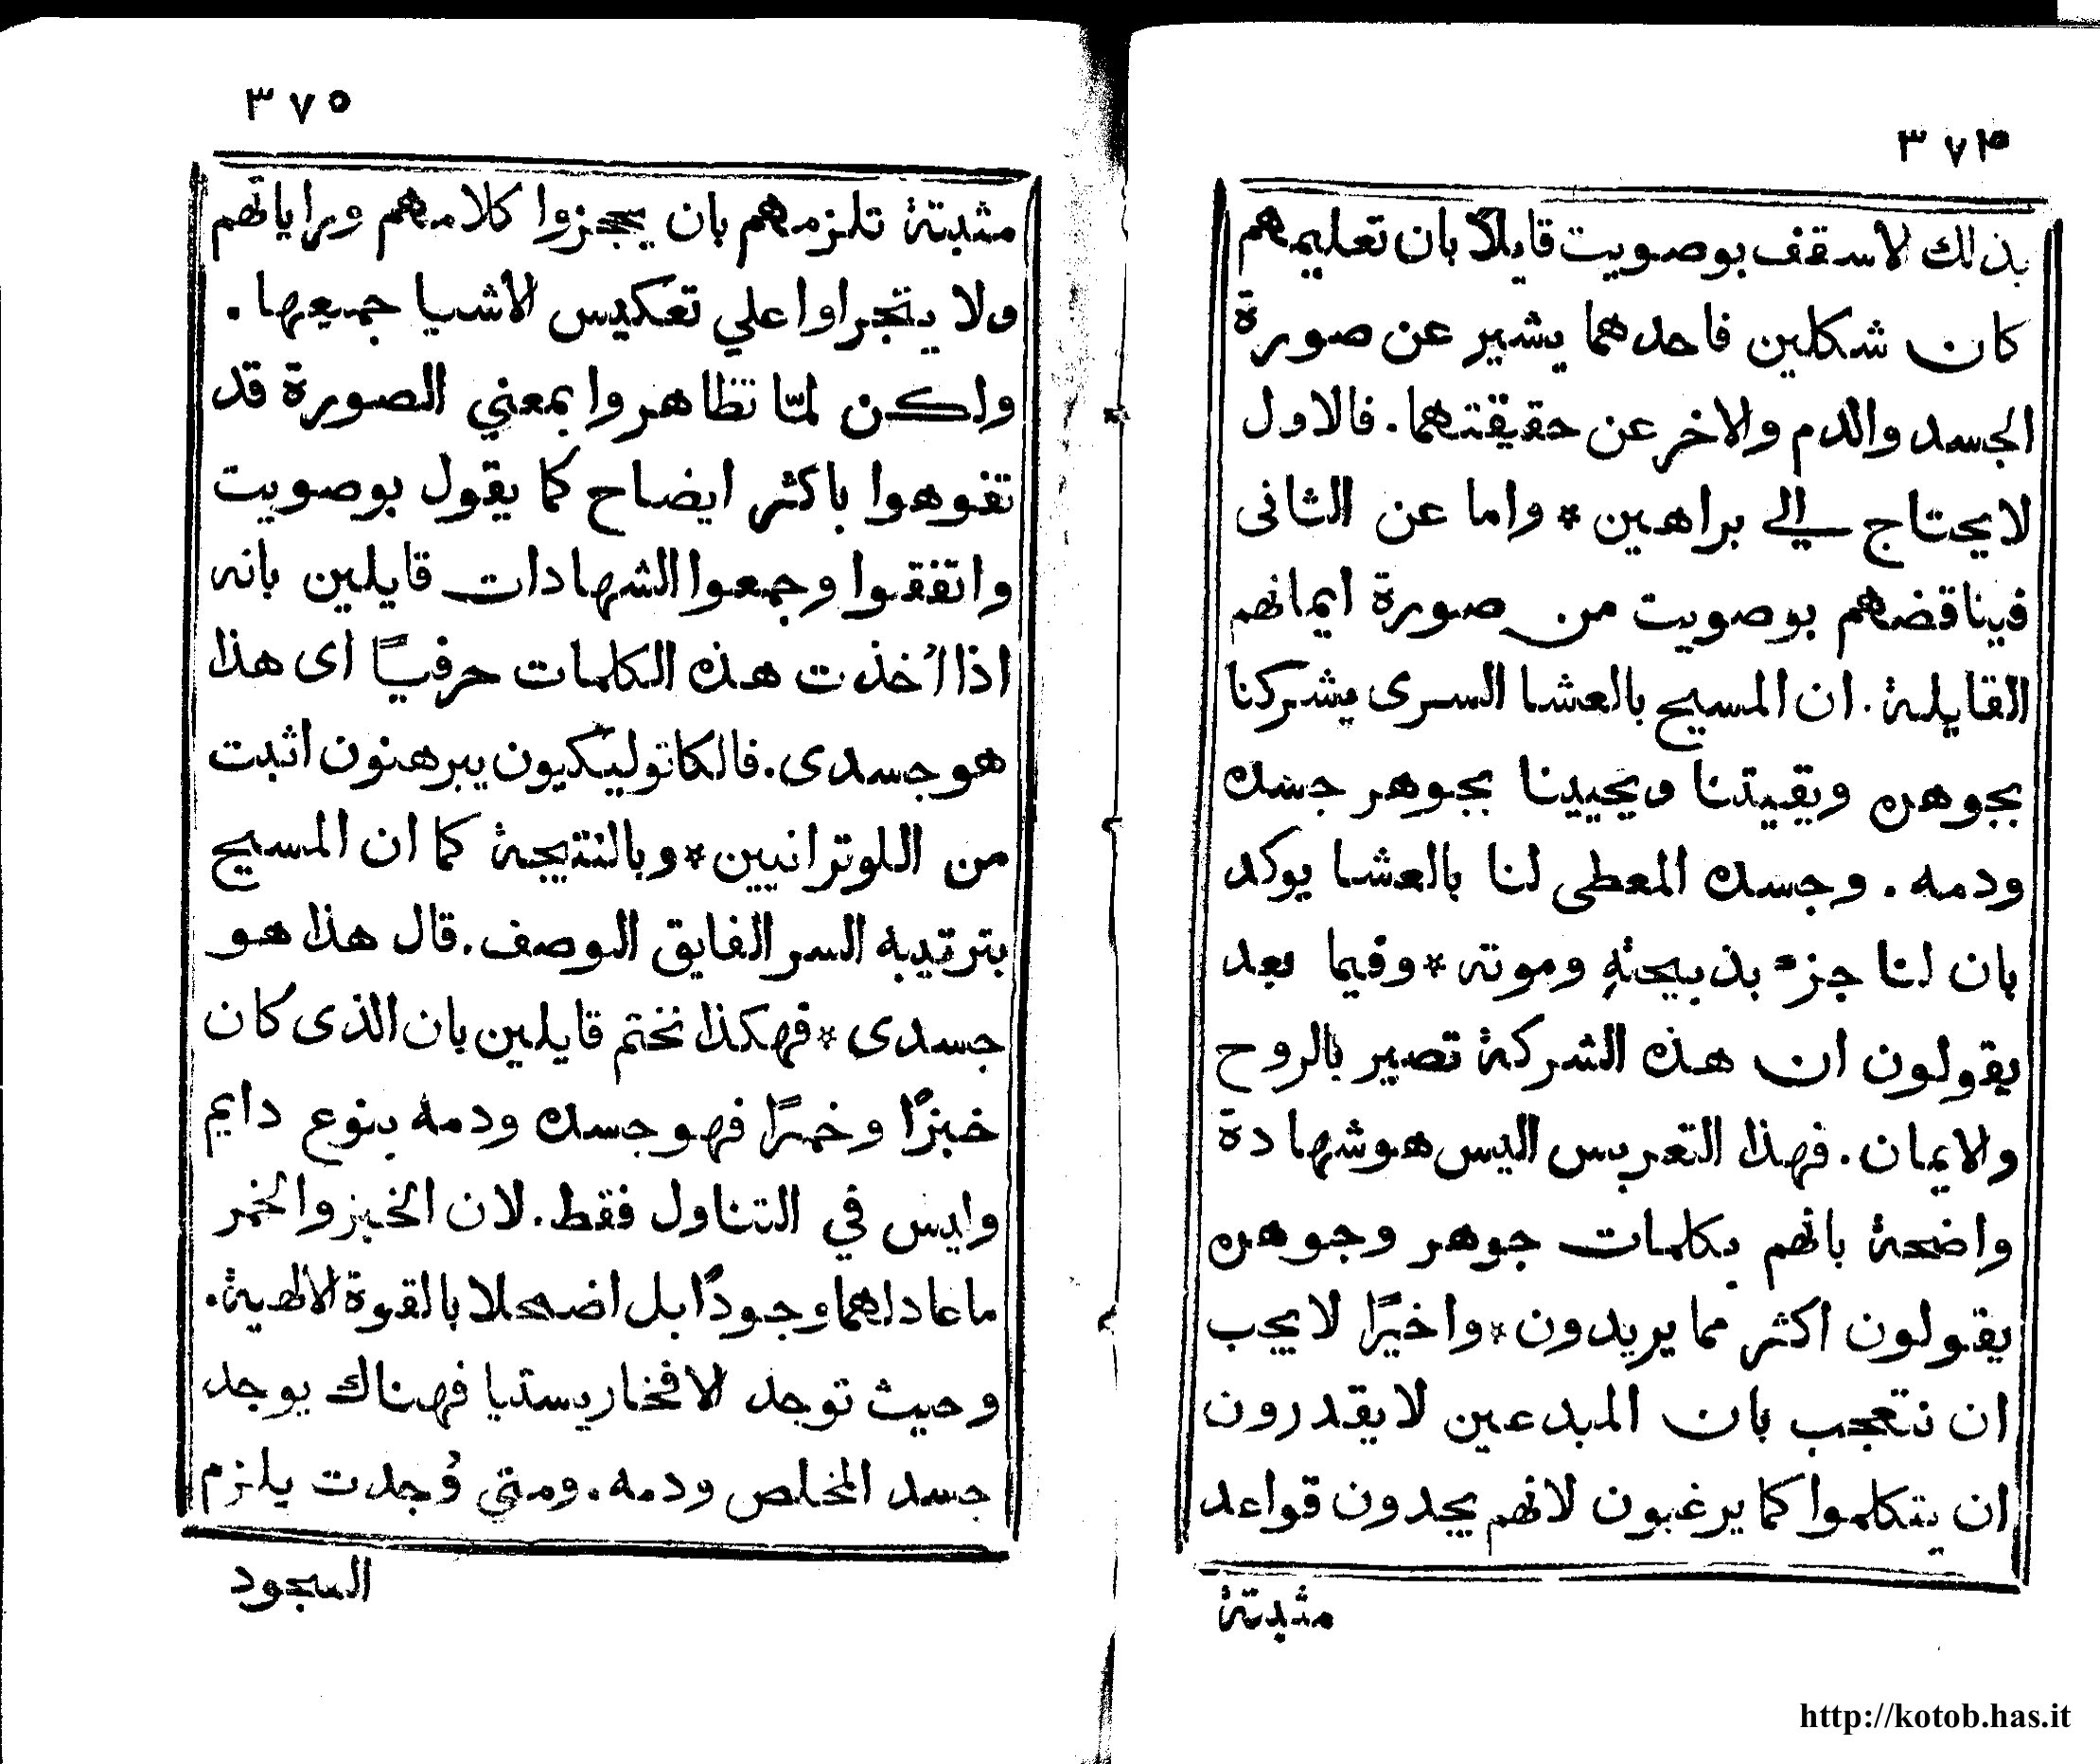 ٣٧٤
بذلك لاسقف بوصويت قايلاً بان تعليمهم
كان شكلين فاحدهما يشير عن صورة
الجسد والدم والاخر عن حقيقتهما. فالاول
لا يحتاج الي براهين * واما عن الثانى
فيناقضهم بوصويت من صورة ايمانهم
القايلة. ان المسيح بالعشا السرى يشركنا
بجوهره ويقيتنا ويحيينا بجوهر جسده
ودمه. وجسده المعطى لنا بالعشا يوكد
بان لنا جزء بذبيحتهِ وموته * وفيما بعد
يقولون ان هذه الشركة تصير بالروح
والايمان. فهذا التعريس اليس هو شهادة
واضحة بانهم بكلمات جوهر وجوهره
يقولون اكثر مما يريدون * واخيرًا لا يجب
ان نتعجب بان المبدعين لا يقدرون
ان يتكلموا كما يرغبون لانهم يجدون قواعد
مثبتة
٣٧٥
مثبتة تلزمهم بان يججزوا كلامهم وراياتهم
ولا يتجراوا علي تعكيس الاشيا جميعها.
ولكن لمّا تظاهروا بمعني الصورة قد
تفوهوا باكثر ايضاح كما يقول بوصويت
واتفقوا وجمعوا الشهادات قايلين بانه
اذا اُخذت هذه الكلمات حرفيًا اى هذا
هو جسدى. فالكاتوليكيون يبرهنون اثبت
من اللوترانيين * وبالنتيجة كما ان المسيح
بترتيبه السر الفايق الوصف. قال هذا هو
جسدى * فهكذا نختم قايلين بان الذى كان
خبزًا وخمرًا فهو جسده ودمه بنوع دايم
وليس في التناول فقط. لان الخبز والخمر
ما عاد لهما وجودًا بل اضمحلا بالقوة الالهية.
وحيث توجد الافخاريستيا فهناك يوجد
جسد المخلص ودمه. ومتي وُجدت يلزم
السجود
http://kotob.has.it